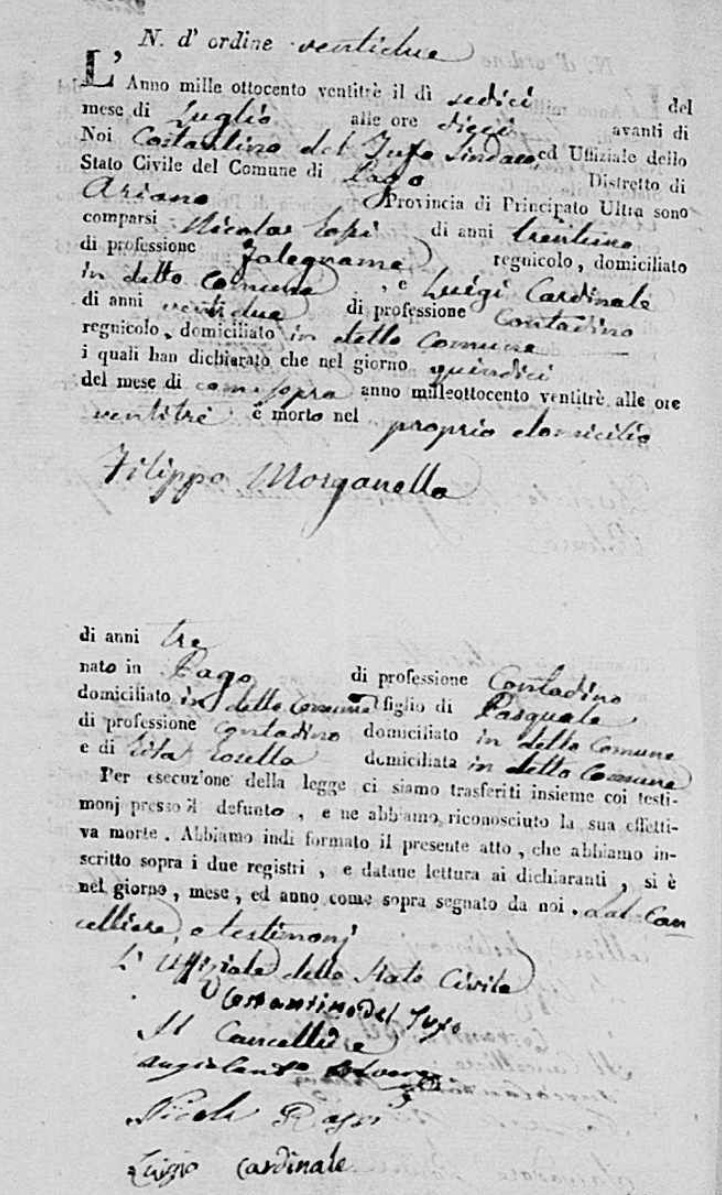 N. d' ordine ventidue
L' Anno mille ottocento ventitrè il dì sedici del
mese di Luglio alle ore dieci avanti di
Noi Costantino del Tufo Sindaco, ed Uffiziale dello
Stato Civile del Comune di Pago Distretto di
Ariano Provincia di Principato Ultra sono
comparsi Nicola di anni trentuno
di professione Falegname regnicolo, domiciliato
in detto Comune, e Luigi Cardinale
di anni ventidue di professione Contadino
regnicolo, domiciliato in detto Comune
i quali han dichiarato che nel giorno quindici
del mese di come sopra anno milleottocento ventitrè alle ore
ventitrè è morto nel proprio domicilio
Filippo Morganella
di anni tre
nato in Pago di professione Contadino
domiciliato in detto Comune figlio di Pasquale
di professione contadino domiciliato in detto Comune
e di Rita domiciliata in detto Comune
Per esecuzione della legge ci siamo trasferiti insieme coi testi-
monj presso il defunto, e ne abbiamo riconosciuto la sua effetti-
va morte. Abbiamo indi formato il presente atto, che abbiamo in-
scritto sopra i due registri, e datane lettura ai dichiaranti, si è
nel giorno, mese, ed anno come sopra segnato da noi, dal Can
celliere, e testimonj
L' Uffiziale dello Stato Civile
Costantino del Tufo
Il Cancelliere
Nicola
Luiggi Cardinale